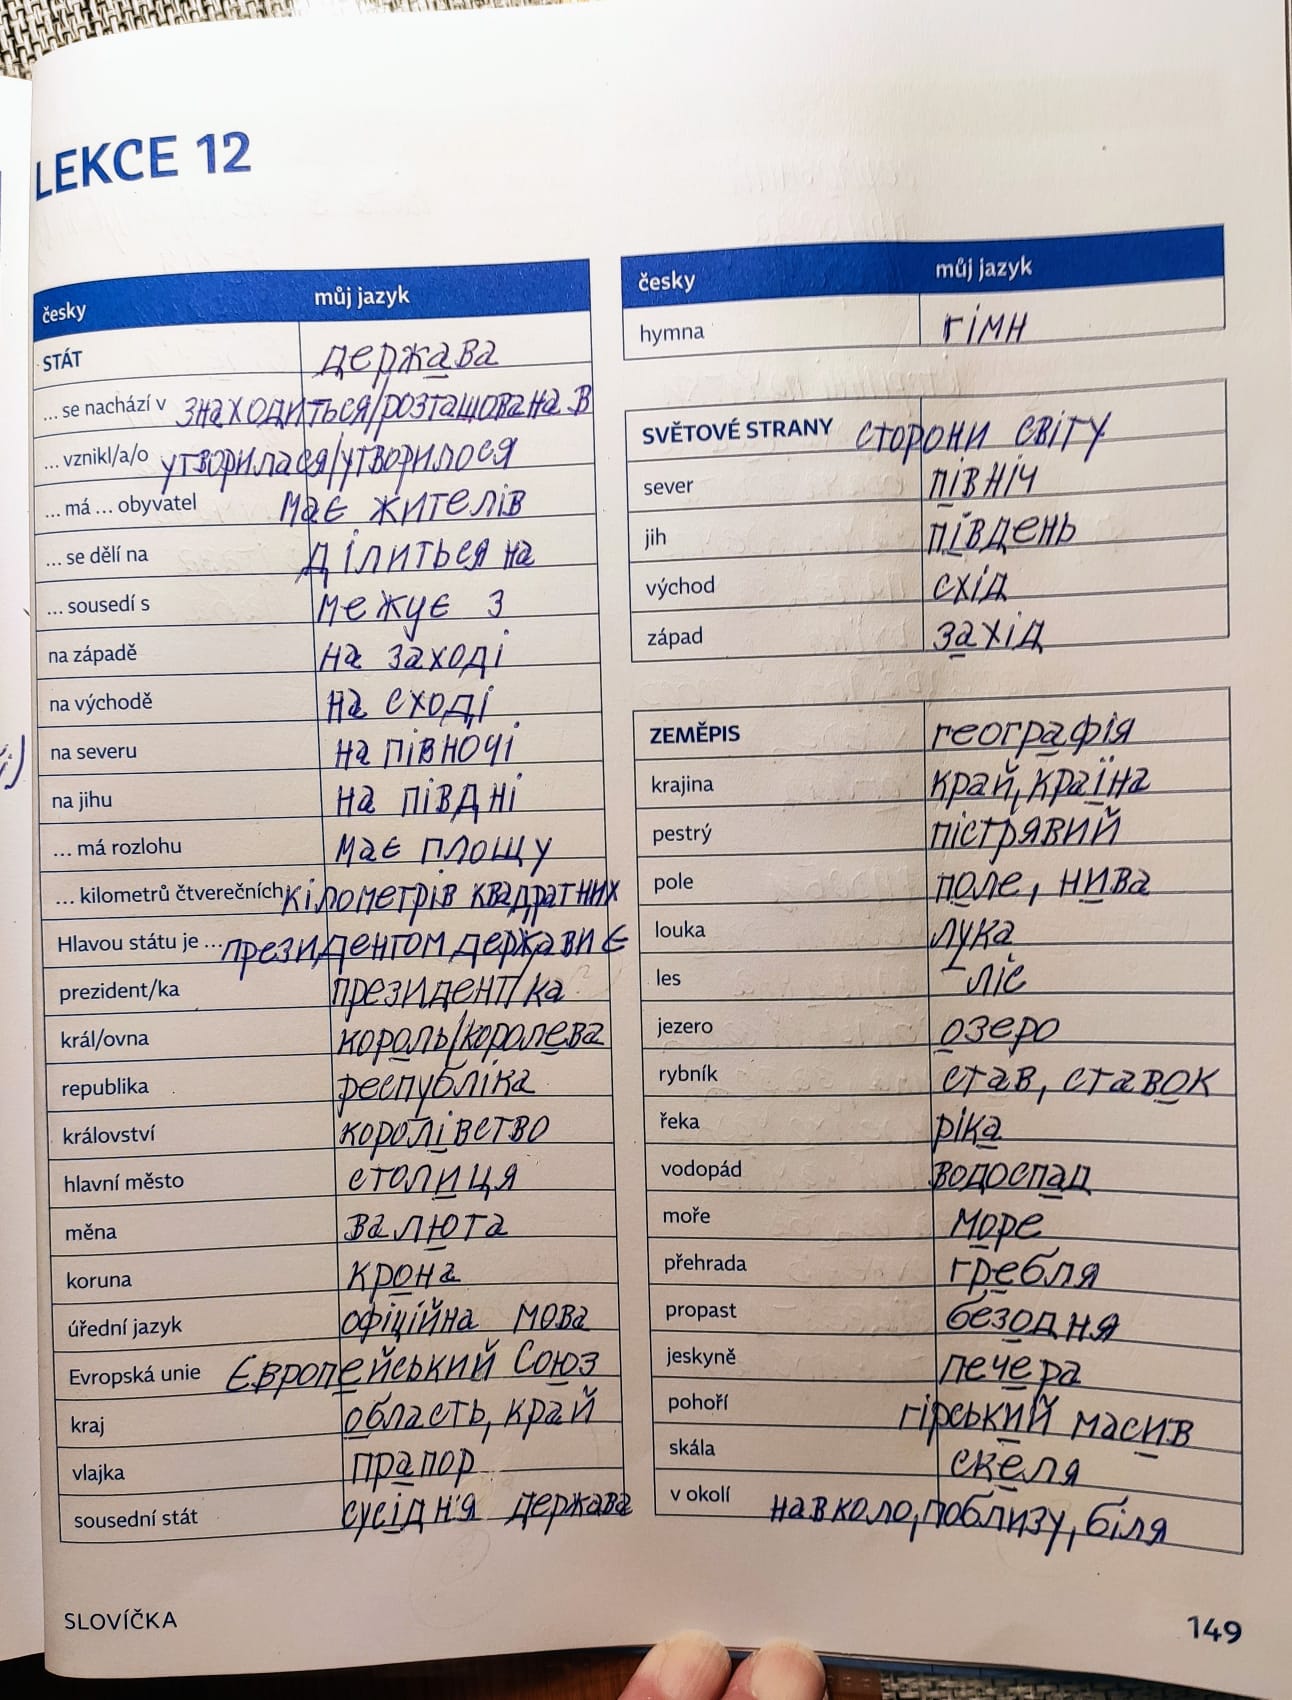 LEKCE 12
česky můj jazyk
STÁT держава
... se nachází v знаходиться/розташована в
... vznikl/a/o утворилася/утворилося
... má ... obyvatel має жителів
... se dělí na ділиться на
... sousedí s межує з
na západě на заході
na východě на сході
na severu на півночі
na jihu на півдні
... má rozlohu має площу
... kilometrů čtverečních кілометрів квадратних
Hlavou státu je ... президентом держави є
prezident/ka президент/ка
král/ovna король/королева
republika республіка
království королівство
hlavní město столиця
měna валюта
koruna крона
úřední jazyk офіційна мова
Evropská unie Європейський Союз
kraj область, край
vlajka прапор
sousední stát сусідн'я держава
česky můj jazyk
hymna гімн
SVĚTOVÉ STRANY сторони світу
sever північ
jih південь
východ схід
západ захід
ZEMĚPIS географія
krajina край, країна
pestrý пістрявий
pole поле, нива
louka лука
les ліс
jezero озеро
rybník став, ставок
řeka ріка
vodopád водоспад
moře море
přehrada гребля
propast безодня
jeskyně печера
pohoří гірський масив
skála скеля
v okolí навколо, поблизу, біля
SLOVÍČKA
149